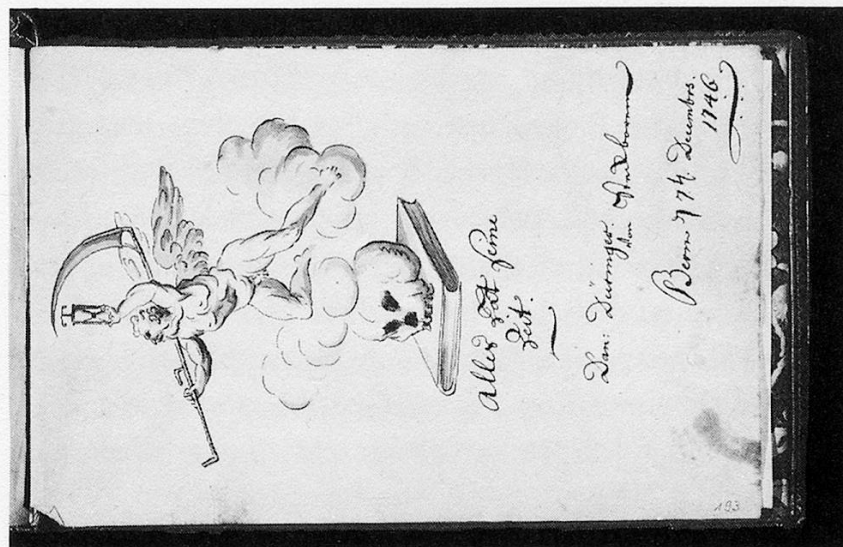 Alles hat seine
Zeit.
Dan: Düringer.
von Steckboren
Bern d 74. Decembrs.
1746
193